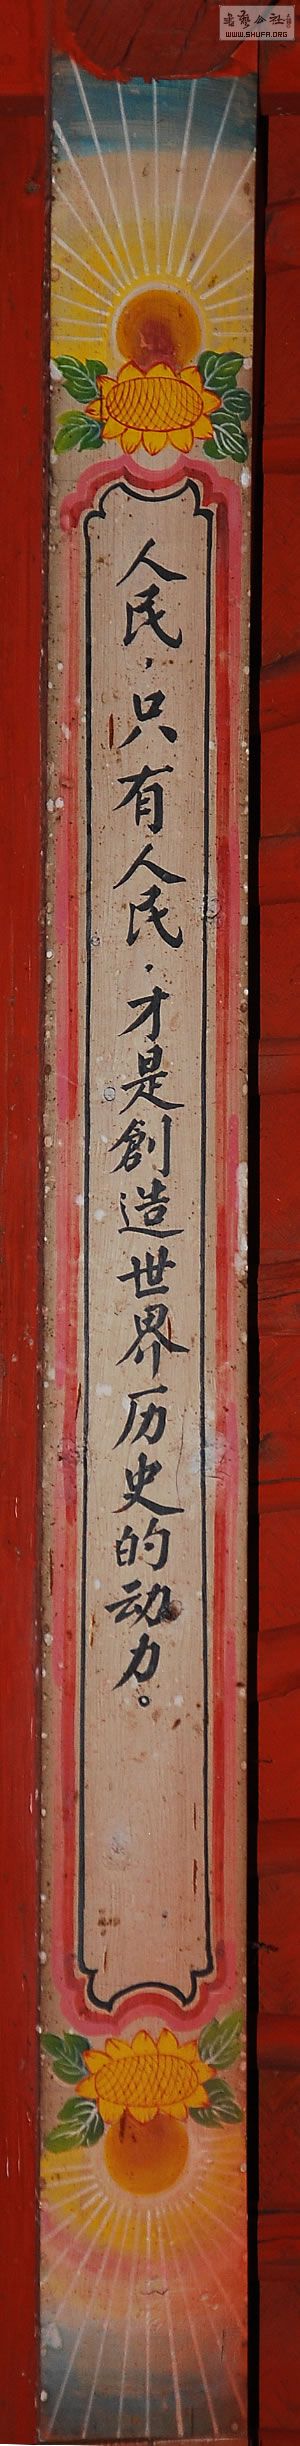 书艺公社
WWW.SHUFA.ORG
人民,只有人民,才是創造世界历史的动力。